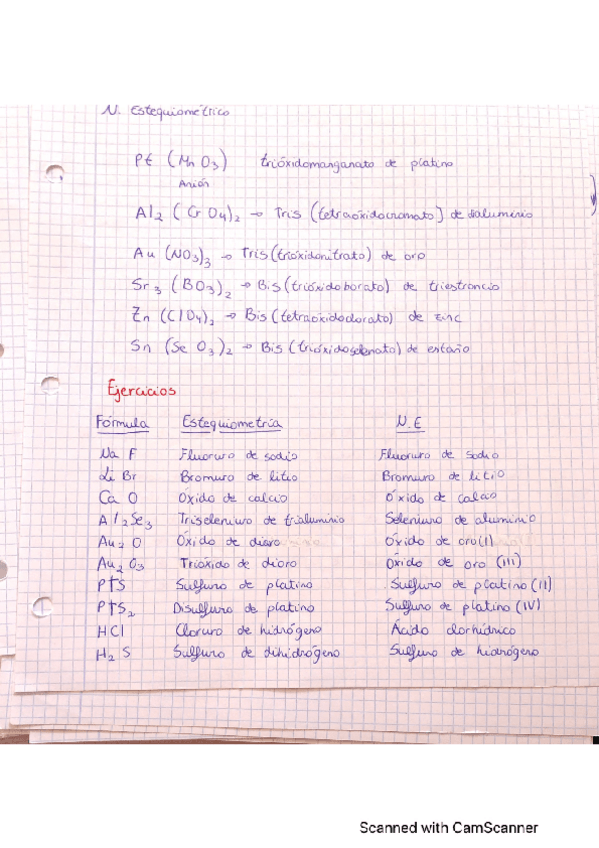 N. Estequiométrico
Pt (MnO3) trióxidomanganato de platino
Anión
Al2 (CrO4)2 → Tris (tetraóxidocromato) de dialuminio
Au (NO3)3 → Tris (trióxidonitrato) de oro
Sr3 (BO3)2 → Bis (trióxidoborato) de triestroncio
Zn (ClO4)2 → Bis (tetraóxidoclorato) de zinc
Sn (SeO3)2 → Bis (trióxidoselenato) de estaño
Ejercicios
Fórmula Estequiometría N.E
Na F Fluoruro de sodio Fluoruro de sodio
Li Br Bromuro de litio Bromuro de litio
Ca O Óxido de calcio Óxido de calcio
Al2Se3 Triseleniuro de trialuminio Seleniuro de aluminio
Au2 O Óxido de dioro Óxido de oro(I)
Au2 O3 Trióxido de dioro Óxido de oro (III)
PtS Sulfuro de platino Sulfuro de platino (II)
PtS2 Disulfuro de platino Sulfuro de platino (IV)
HCl Cloruro de hidrógeno Ácido clorhídrico
H2 S Sulfuro de dihidrógeno Sulfuro de hidrógeno
Scanned with CamScanner